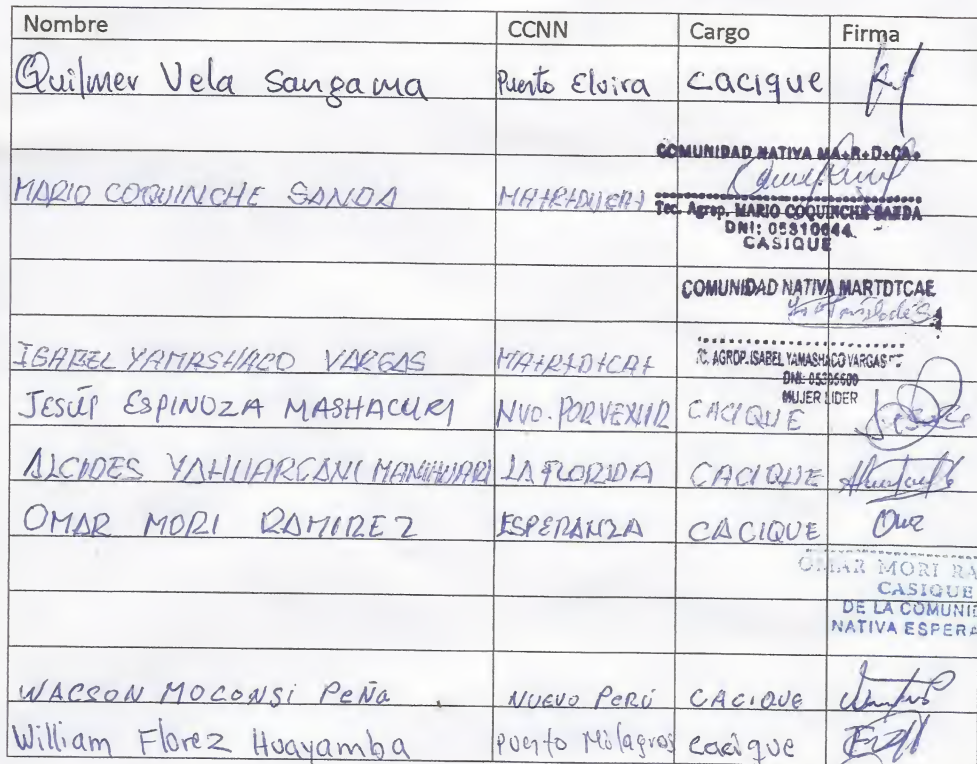 Nombre CCNN Cargo Firma
Quilmer Vela Sangama Puerto Elvira Cacique
COMUNIDAD NATIVA MA+R+D+CA+
MARIO COQUINCHE SANDA
Tec. Agrop. MARIO COQUINCHE SANDA
DNI: 05310644
CASIQUE
COMUNIDAD NATIVA MARTDTCAE
ISABEL YAMASHACO VARGAS MA+R+D+CA+
AGROP. ISABEL YAMASHACO VARGAS
DNI: 05395600
MUJER LIDER
JESÚS ESPINOZA MASHACURI NVO. PORVENIR CACIQUE
ALCIDES YAHUARCANI MANIHUARI LA FLORIDA CACIQUE
OMAR MORI RAMIREZ ESPERANZA CACIQUE
OMAR MORI RA
CASIQUE
DE LA COMUNID
NATIVA ESPERA
WACSON MOCONSI PEÑA NUEVO PERÚ CACIQUE
William Florez Huayamba Puerto Milagros cacique